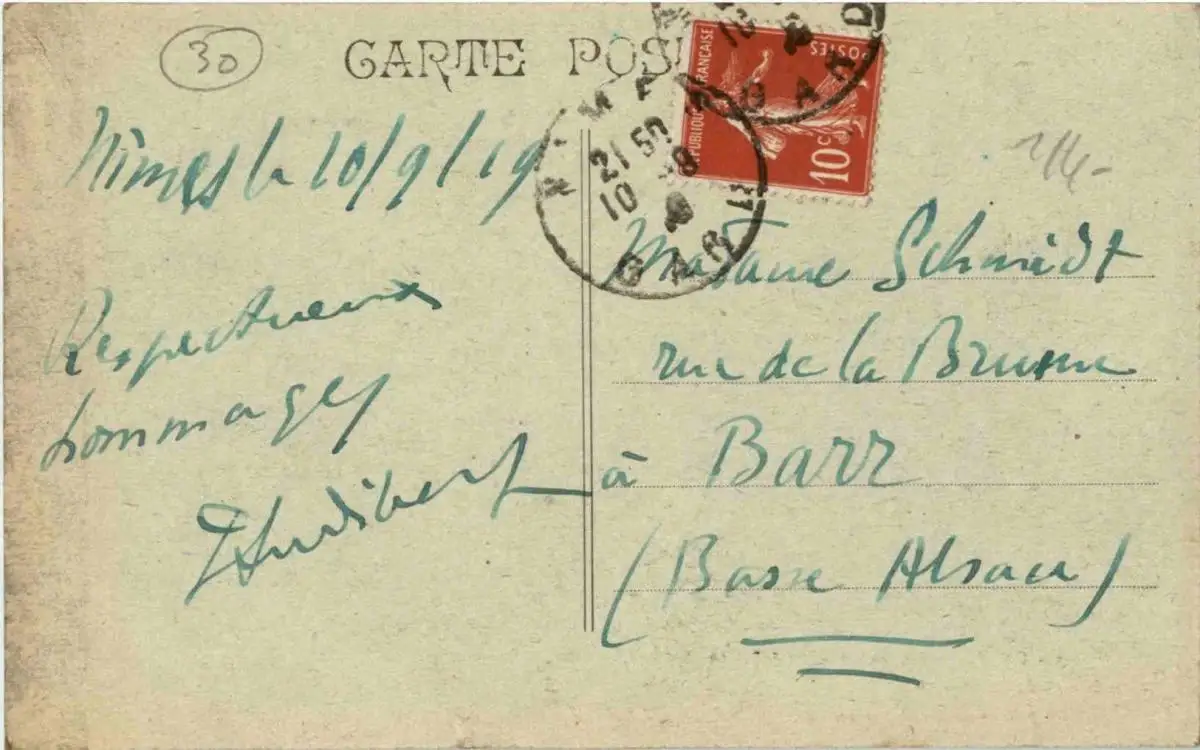 30
CARTE POS
RÉPUBLIQUE FRANÇAISE
POSTES
10c
NIMES
21 50
10 -9
GARD
Nîmes le 10/9/19
Respectueux
hommages
Madame Schmidt
rue de la
à Barr
(Basse Alsace)